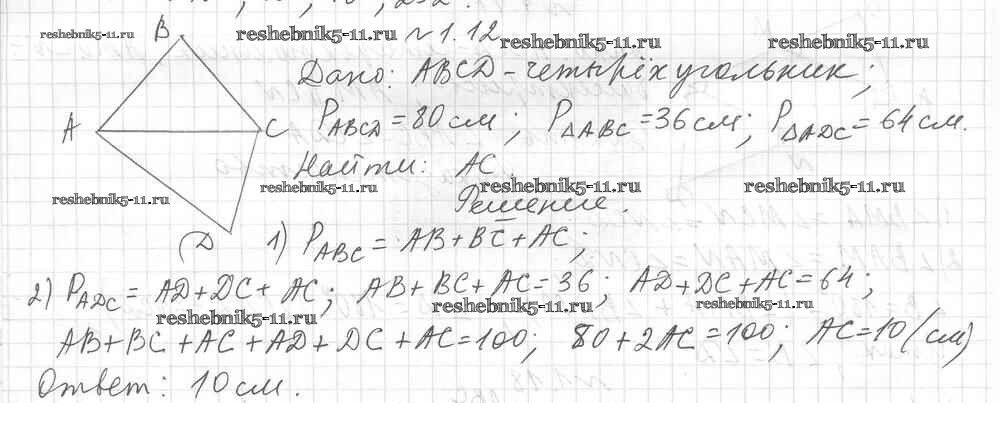 reshebnik5-11.ru B reshebnik5-11.ru №1.12 reshebnik5-11.ru reshebnik5-11.ru
Дано: ABCD - четырёхугольник;
A C P_ABCD = 80 см; P_ΔABC = 36 см; P_ΔADC = 64 см.
Найти: AC
reshebnik5-11.ru reshebnik5-11.ru reshebnik5-11.ru reshebnik5-11.ru
Решение.
D 1) P_ABC = AB + BC + AC;
2) P_ADC = AD + DC + AC; AB + BC + AC = 36; AD + DC + AC = 64;
reshebnik5-11.ru reshebnik5-11.ru reshebnik5-11.ru
AB + BC + AC + AD + DC + AC = 100; 80 + 2AC = 100; AC = 10 (см)
Ответ: 10 см.